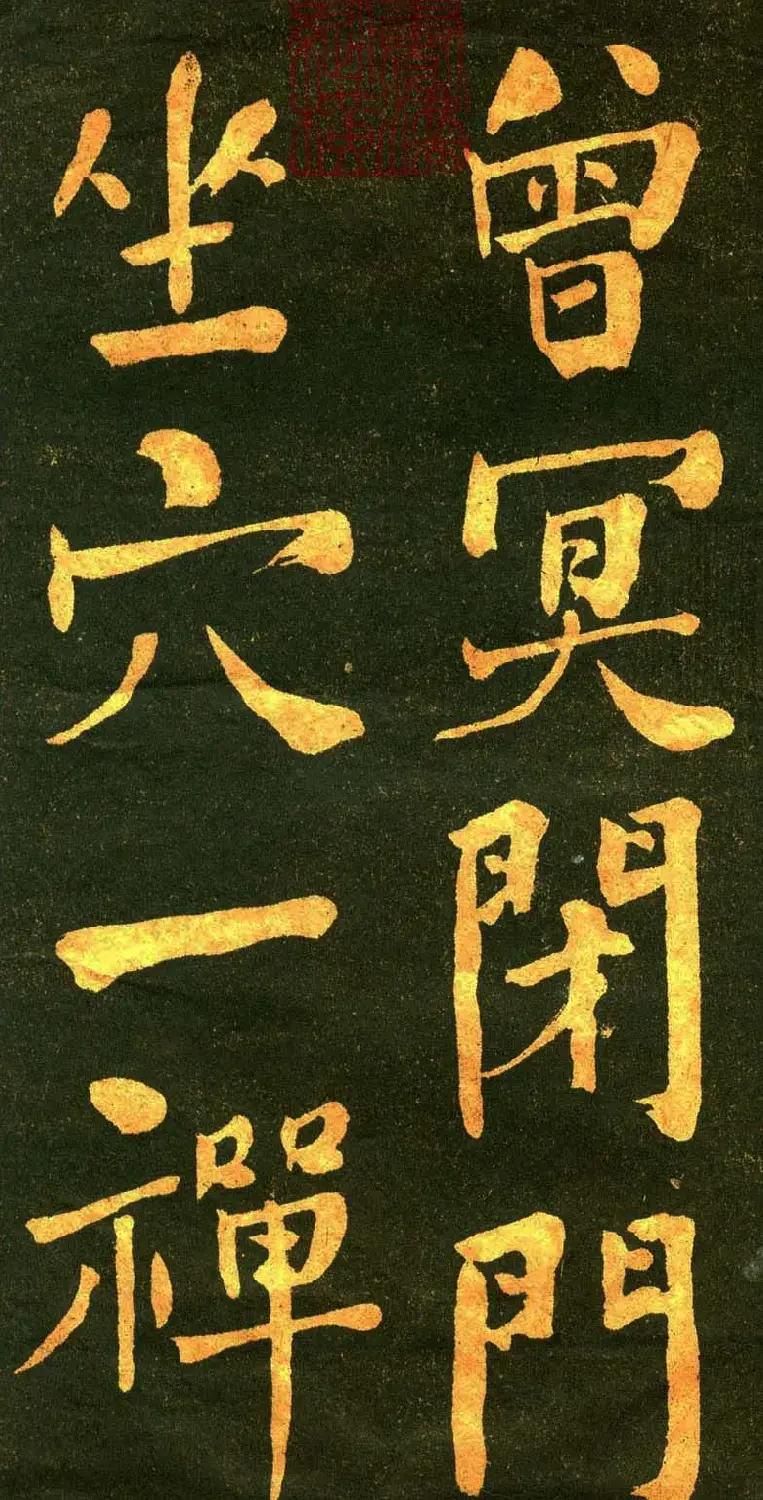 曾冥閉門
坐穴一禪